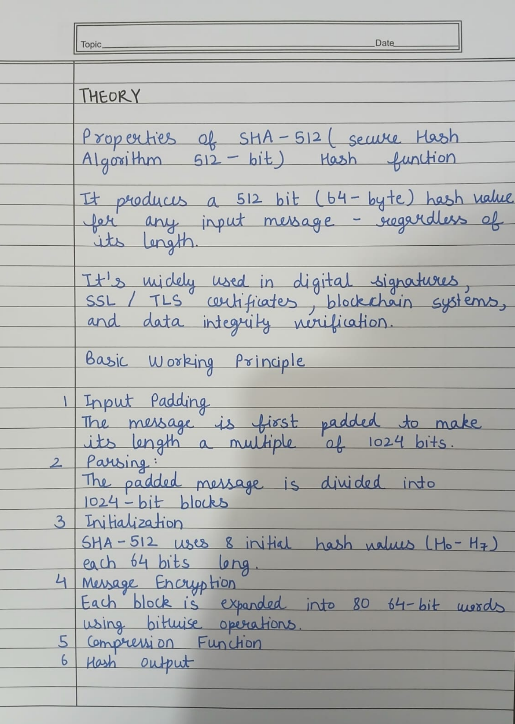 Topic Date
THEORY
Properties of SHA-512 ( secure Hash
Algorithm 512 - bit) Hash function
It produces a 512 bit (64-byte) hash value
for any input message - regardless of
its length.
It's widely used in digital signatures,
SSL / TLS certificates, blockchain systems,
and data integrity verification.
Basic Working Principle
1 Input Padding
The message is first padded to make
its length a multiple of 1024 bits.
2 Parsing:
The padded message is divided into
1024-bit blocks
3 Initialization
SHA-512 uses 8 initial hash values (H0-H7)
each 64 bits long.
4 Message Encryption
Each block is expanded into 80 64-bit words
using bitwise operations.
5 Compression Function
6 Hash output